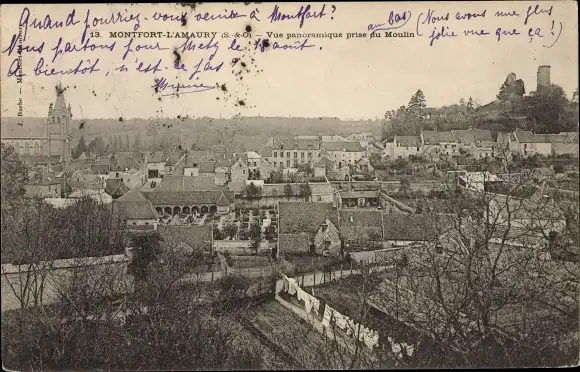 Quand pourriez-vous venir à Montfort?
13. MONTFORT-L'AMAURY (S.-&-O.) - Vue panoramique prise du Moulin
Nous partons pour Metz le 18 août.
A bientôt, n'est-ce pas
au Bas) (Nous avons une plus
jolie vue que ça!)